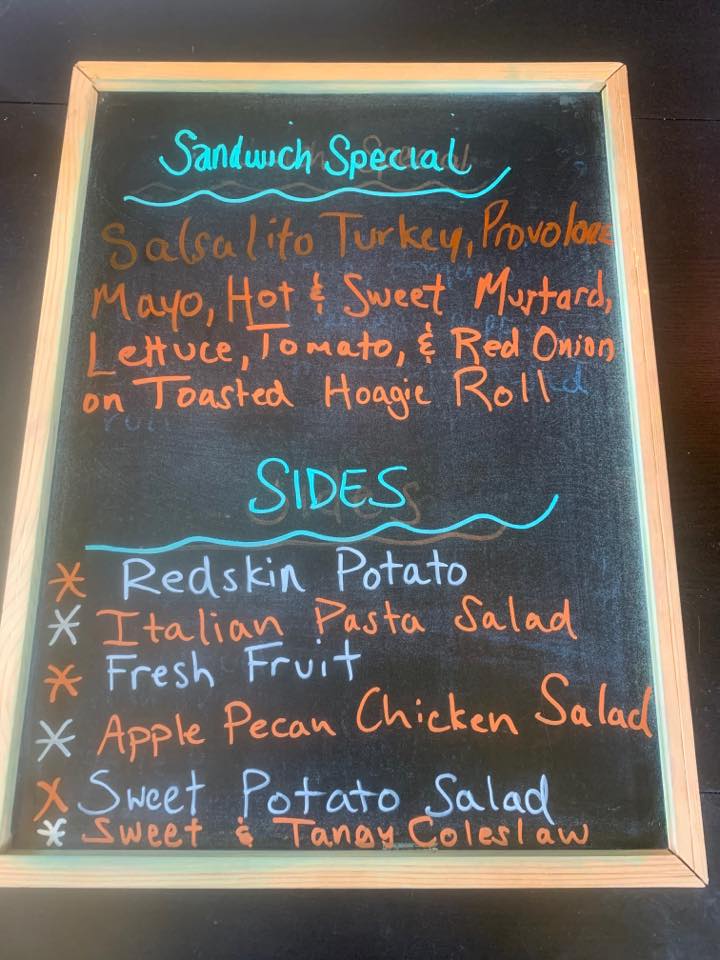 Sandwich Special
Salsalito Turkey, Provolone
Mayo, Hot & Sweet Mustard,
Lettuce, Tomato, & Red Onion
on Toasted Hoagie Roll
SIDES
* Redskin Potato
* Italian Pasta Salad
* Fresh Fruit
* Apple Pecan Chicken Salad
* Sweet Potato Salad
* Sweet & Tangy Coleslaw